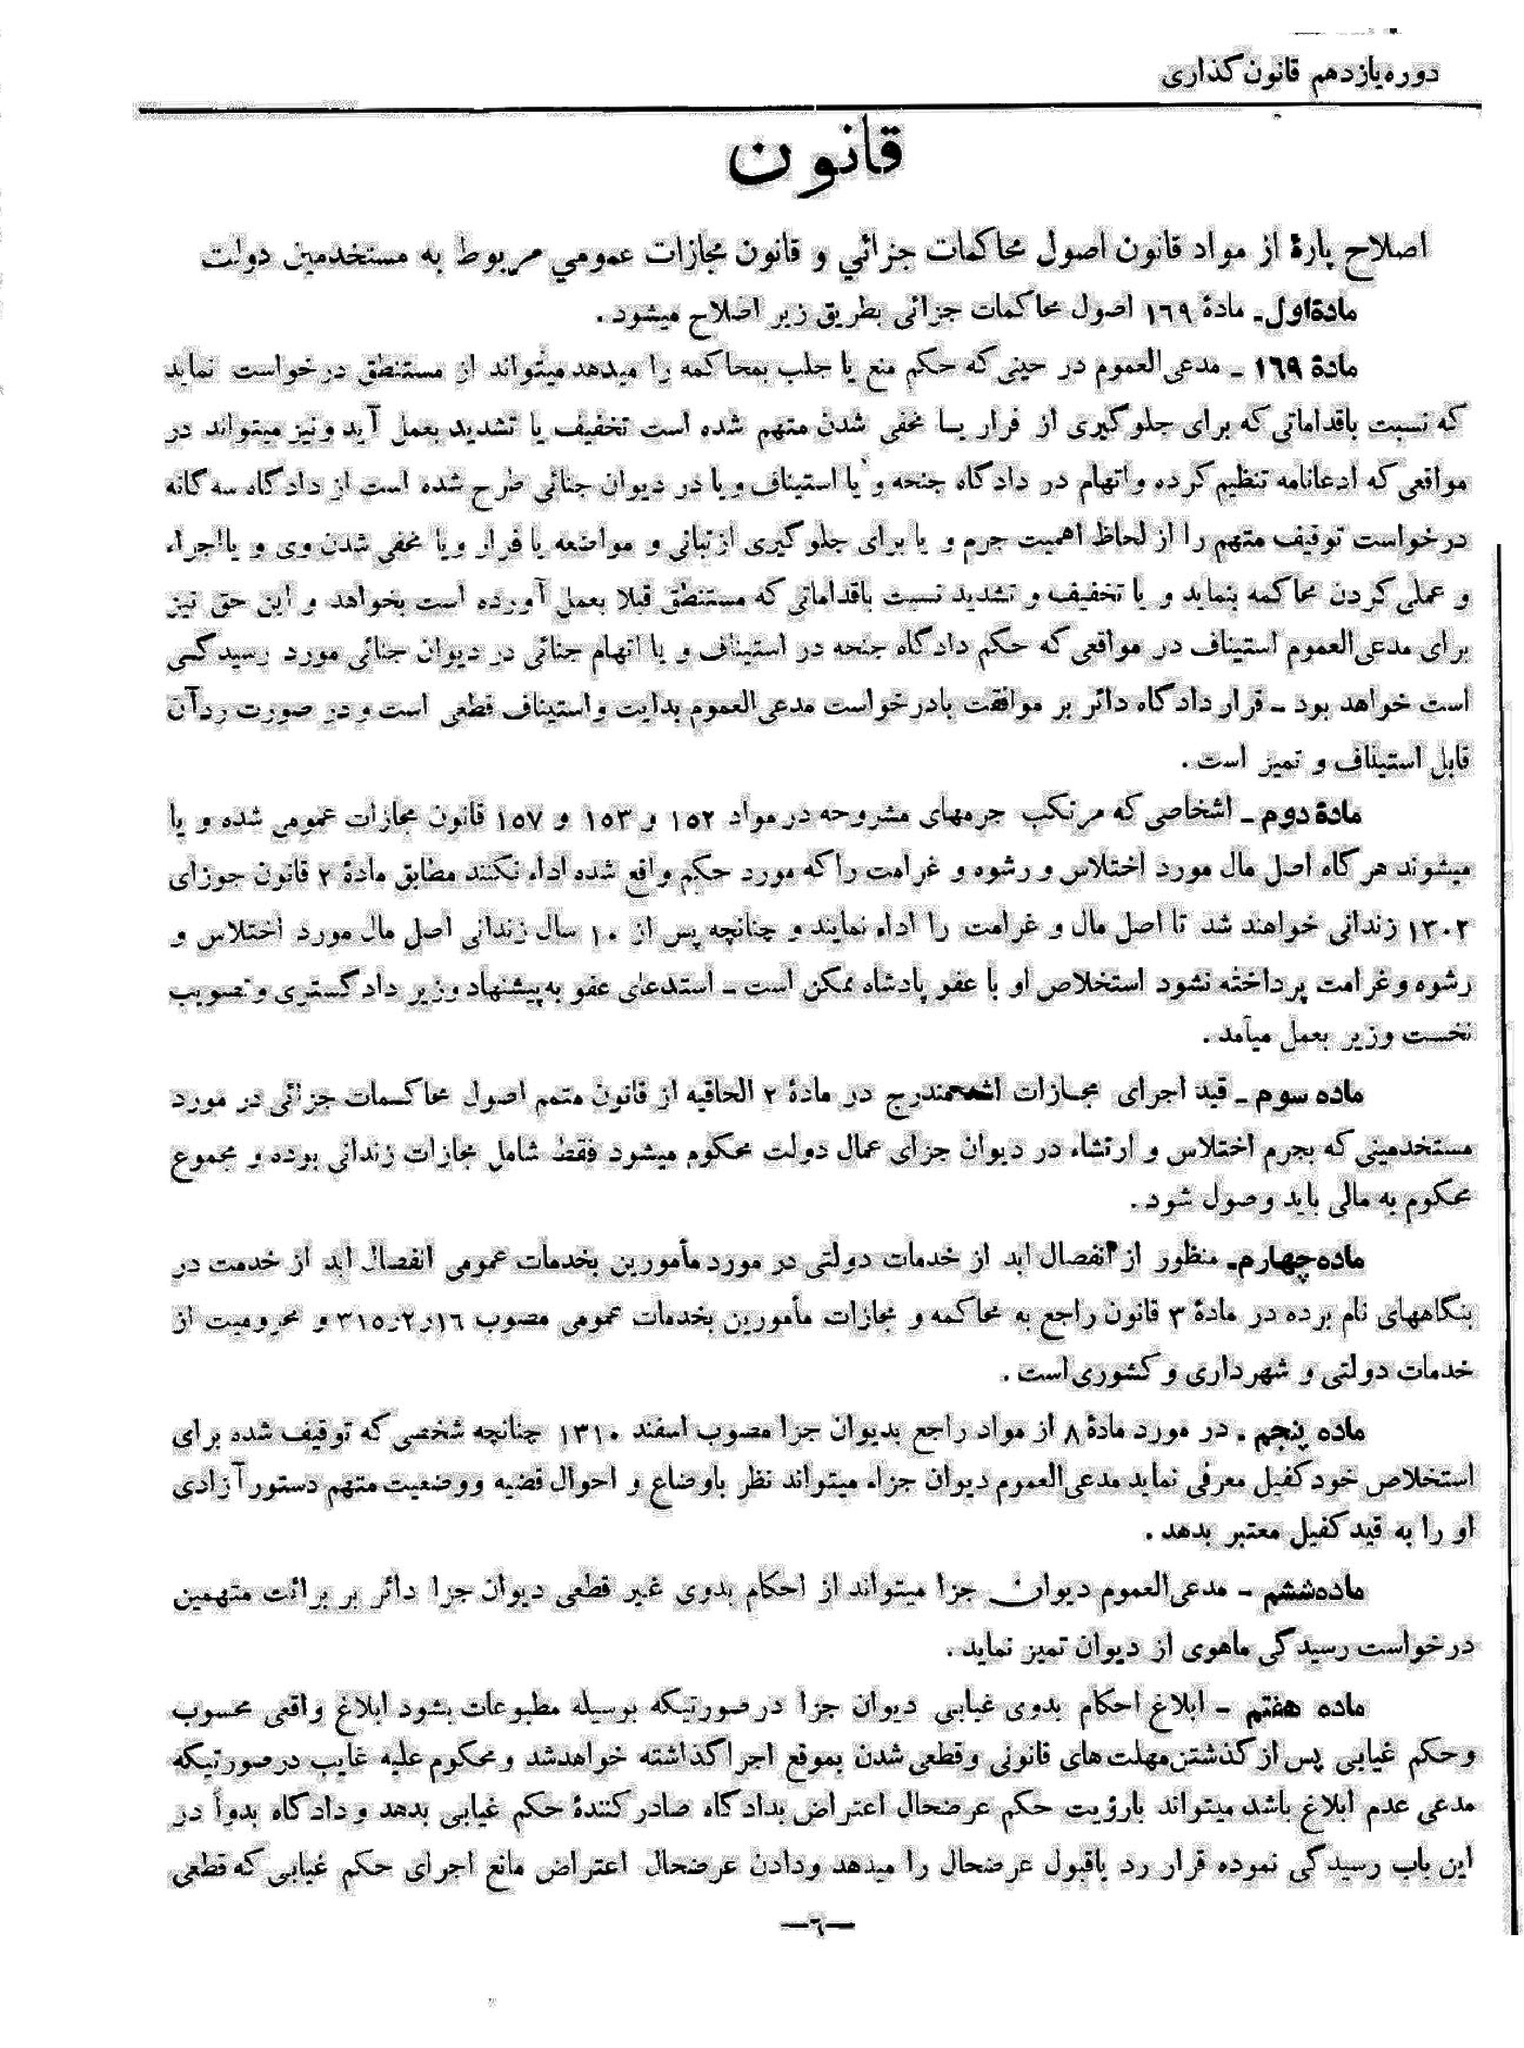 دوره یازدهم قانون گذاری
قانون
اصلاح پارهٔ از مواد قانون اصول محاکمات جزائي و قانون مجازات عمومي مربوط به مستخدمین دولت
مادهٔ اول ـ مادهٔ ۱٦۹ اصول محاکمات جزائی بطریق زیر اصلاح میشود .
مادهٔ ۱٦۹ ـ مدعی العموم در حینی که حکم منع یا جلب بمحاکمه را میدهد میتواند از مستنطق درخواست نماید
که نسبت باقداماتی که برای جلوگیری از فرار یا مخفی شدن متهم شده است تخفیف یا تشدید بعمل آید و نیز میتواند در
مواقعی که ادعانامه تنظیم کرده و اتهام در دادگاه جنحه و یا استیناف و یا در دیوان جنائی طرح شده است از دادگاه سه گانه
درخواست توقیف متهم را از لحاظ اهمیت جرم و یا برای جلوگیری از تبانی و مواضعه یا فرار و یا مخفی شدن وی و یا اجراء
و عملی کردن محاکمه بنماید و یا تخفیف و تشدید نسبت باقداماتی که مستنطق قبلا بعمل آورده است بخواهد و این حق نیز
برای مدعی العموم استیناف در مواقعی که حکم دادگاه جنحه در استیناف و یا اتهام جنائی در دیوان جنائی مورد رسیدگی
است خواهد بود ـ قرار دادگاه دائر بر موافقت بادرخواست مدعی العموم بدایت و استیناف قطعی است و در صورت رد آن
قابل استیناف و تمیز است .
مادهٔ دوم ـ اشخاصی که مرتکب جرمهای مشروحه در مواد ۱۵۲ و ۱۵۳ و ۱۵۷ قانون مجازات عمومی شده و یا
میشوند هرگاه اصل مال مورد اختلاس و رشوه و غرامت را که مورد حکم واقع شده اداء نکنند مطابق مادهٔ ۲ قانون جوزای
۱۳۰۲ زندانی خواهند شد تا اصل مال و غرامت را اداء نمایند و چنانچه پس از ۱۰ سال زندانی اصل مال مورد اختلاس و
رشوه و غرامت پرداخته نشود استخلاص او با عفو پادشاه ممکن است ـ استدعای عفو به پیشنهاد وزیر دادگستری و تصویب
نخست وزیر بعمل میآمد .
ماده سوم ـ قید اجرای مجازات اشد مندرج در مادهٔ ۲ الحاقیه از قانون متمم اصول محاکمات جزائی در مورد
مستخدمینی که بجرم اختلاس و ارتشاء در دیوان جزای عمال دولت محکوم میشود فقط شامل مجازات زندانی بوده و مجموع
محکوم به مالی باید وصول شود .
ماده چهارم ـ منظور از انفصال ابد از خدمات دولتی در مورد مأمورین بخدمات عمومی انفصال ابد از خدمت در
بنگاههای نام برده در مادهٔ ۳ قانون راجع به محاکمه و مجازات مأمورین بخدمات عمومی مصوب ۱٦ر۲ر۳۱۵ و محرومیت از
خدمات دولتی و شهرداری و کشوری است .
ماده پنجم . در مورد مادهٔ ۸ از مواد راجع بدیوان جزا مصوب اسفند ۱۳۱۰ چنانچه شخصی که توقیف شده برای
استخلاص خود کفیل معرفی نماید مدعی العموم دیوان جزاء میتواند نظر باوضاع و احوال قضیه و وضعیت متهم دستور آزادی
او را به قید کفیل معتبر بدهد .
ماده ششم ـ مدعی العموم دیوان جزا میتواند از احکام بدوی غیر قطعی دیوان جزا دائر بر برائت متهمین
درخواست رسیدگی ماهوی از دیوان تمیز نماید .
ماده هفتم ـ ابلاغ احکام بدوی غیابی دیوان جزا درصورتیکه بوسیله مطبوعات بشود ابلاغ واقعی محسوب
و حکم غیابی پس از گذشتن مهلت های قانونی و قطعی شدن بموقع اجرا گذاشته خواهدشد و محکوم علیه غایب درصورتیکه
مدعی عدم ابلاغ باشد میتواند بارؤیت حکم عرضحال اعتراض بدادگاه صادر کنندهٔ حکم غیابی بدهد و دادگاه بدواً در
این باب رسیدگی نموده قرار رد یاقبول عرضحال را میدهد و دادن عرضحال اعتراض مانع اجرای حکم غیابی که قطعی
—٦—